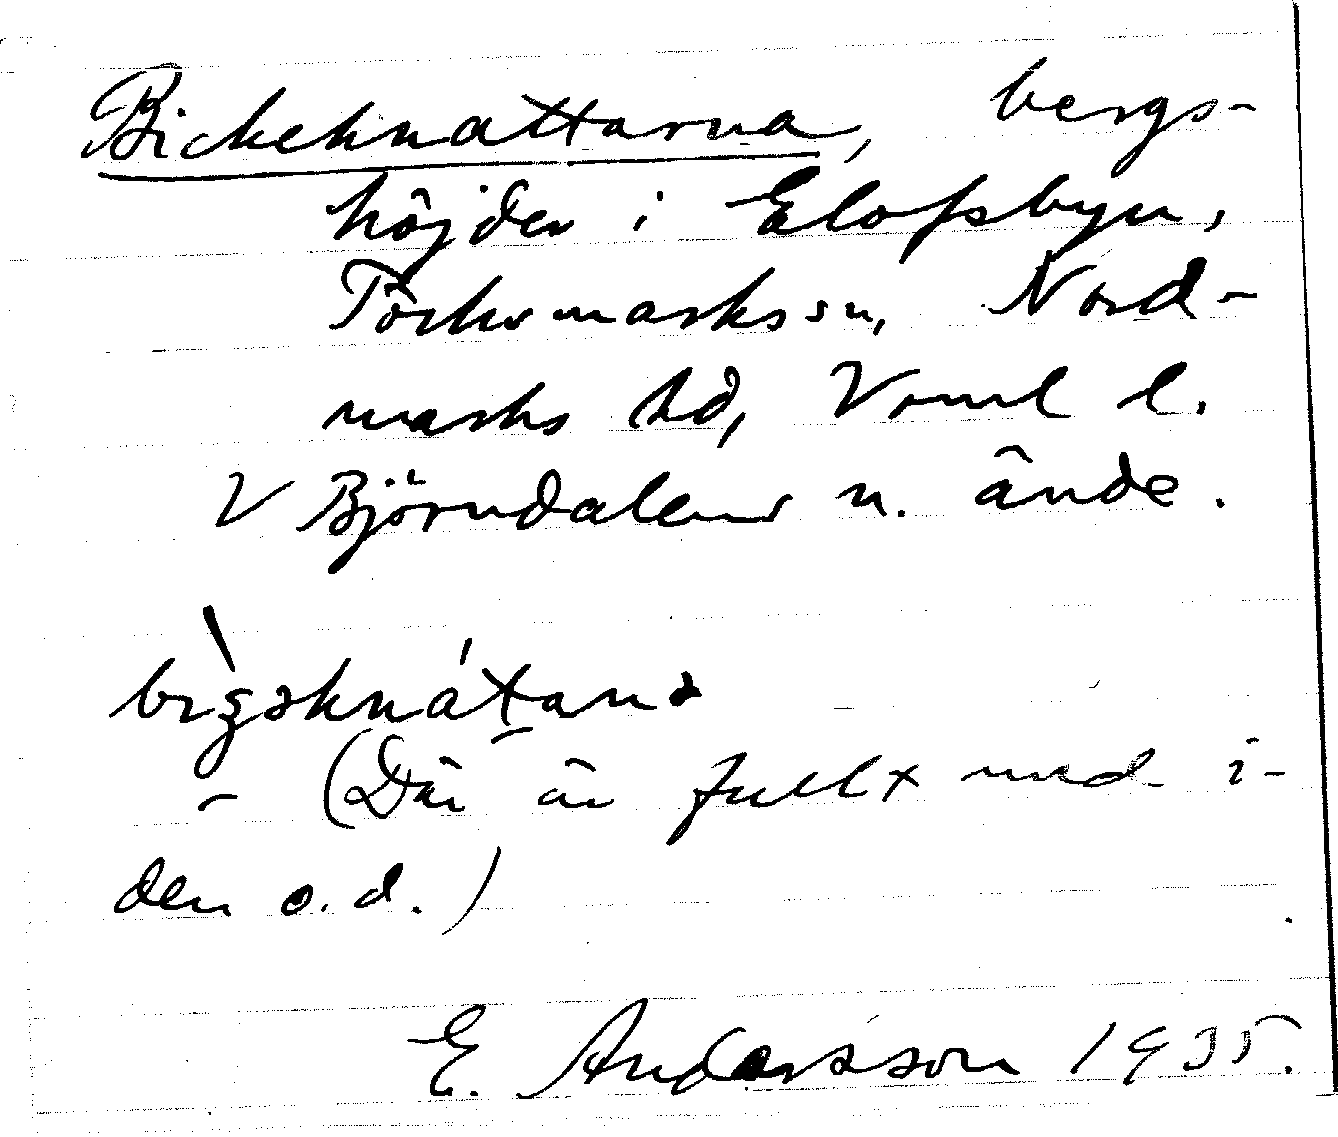 Bickeknattarna, bergs-
höjder i Elofsbyn,
Töcksmarks sn, Nord-
marks hd, Verml l.
V Björndalens n. ände.
-
(Där är fullt med i-
den o.d.)
E. Andersson 1935.